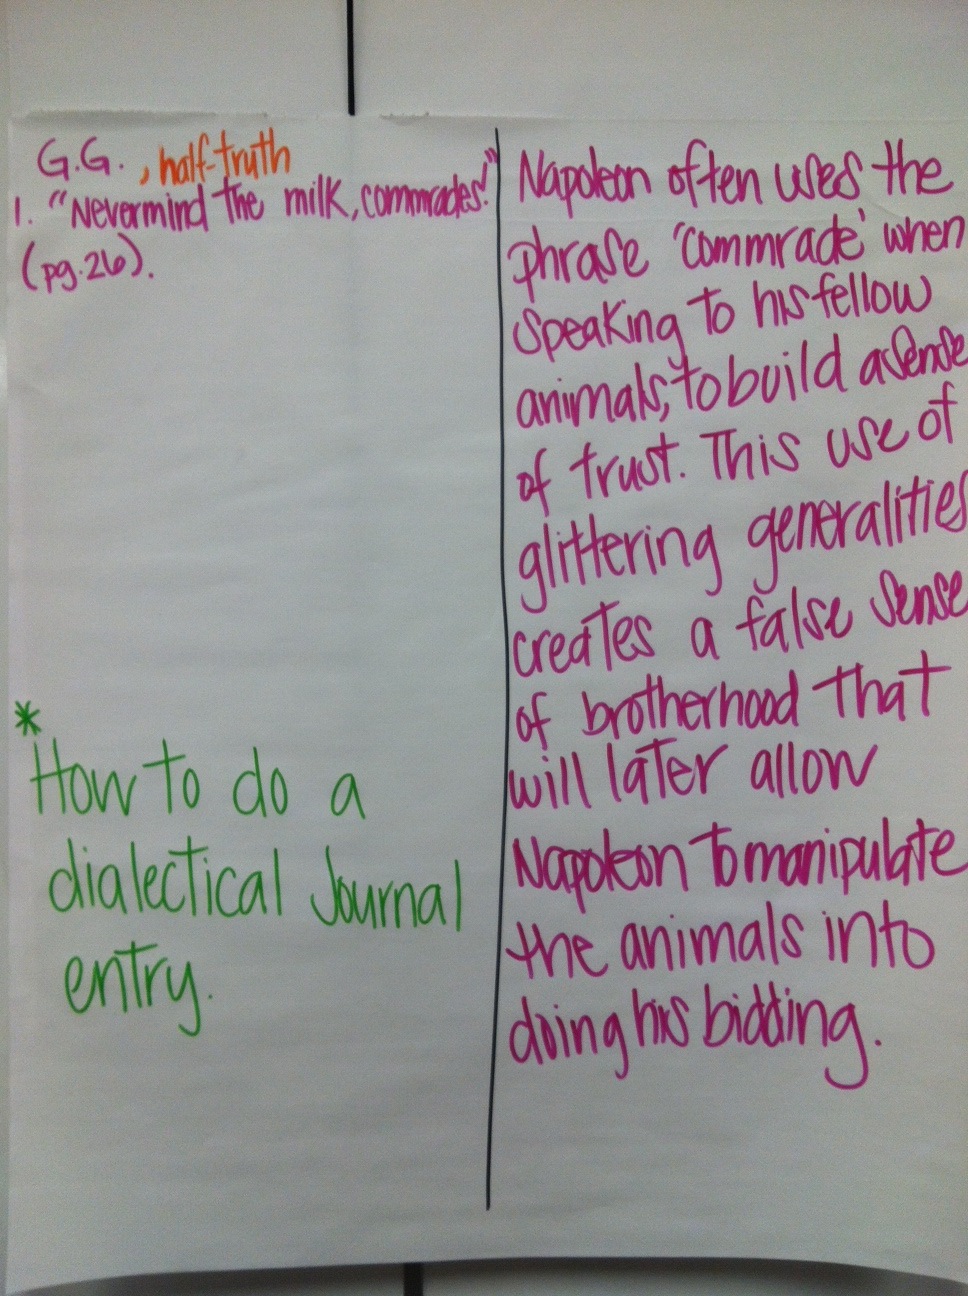 G.G. , half-truth
1. "Nevermind the milk, commrades!"
(pg. 26).
* How to do a
dialectical Journal
entry.
Napoleon often uses the
phrase 'commrade' when
speaking to his fellow
animals, to build a sense
of trust. This use of
glittering generalities
creates a false sense
of brotherhood that
will later allow
Napoleon to manipulate
the animals into
doing his bidding.